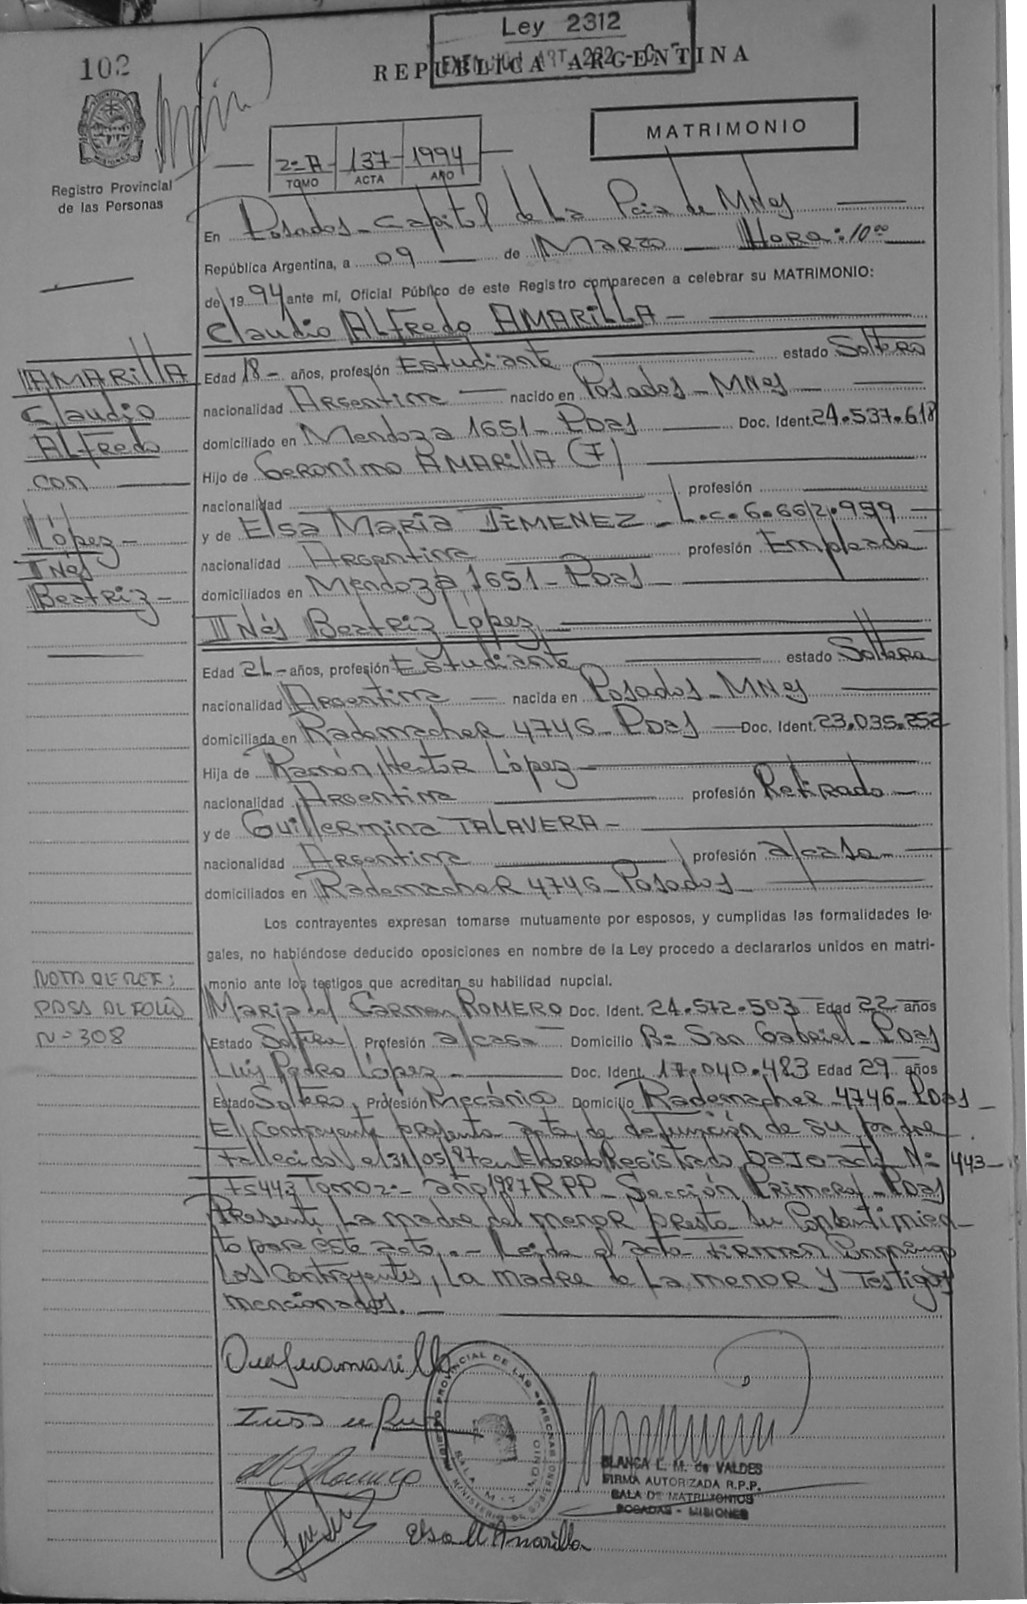 Ley 2312
102
REPUBLICA ARGENTINA
MATRIMONIO
2º A - 137 - 1994
TOMO ACTA AÑO
Registro Provincial
de las Personas
En Posadas - Capital de La Pcia de MNes
República Argentina, a 09 de Marzo Hora: 10 00
de 19 94 ante mi, Oficial Público de este Registro comparecen a celebrar su MATRIMONIO:
Claudio ALFRedo AMARILLA -
AMARILLA
Claudio
ALFRedo
con
López -
INés
Beatriz -
Edad 18 - años, profesión Estudiante estado Soltero
nacionalidad Argentina nacido en Posadas - MNes
domiciliado en Mendoza 1651 - PDas Doc. Ident. 24.537.618
Hijo de Geronimo AMARILLA (F)
nacionalidad profesión
y de Elsa MARIA JIMENEZ - L.C. 6.662.959
nacionalidad Argentina profesión Empleada
domiciliados en Mendoza 1651 - PDas
INés Beatriz López
Edad 21 - años, profesión Estudiante estado Soltera
nacionalidad Argentina nacida en Posadas - MNes
domiciliada en Rademacher 4746 - PDas Doc. Ident. 23.035.252
Hija de Ramón Hector López
nacionalidad Argentina profesión Retirado
y de Guillermina TALAVERA -
nacionalidad Argentina profesión a/casa
domiciliados en Rademacher 4746 - Posadas
Los contrayentes expresan tomarse mutuamente por esposos, y cumplidas las formalidades le-
gales, no habiéndose deducido oposiciones en nombre de la Ley procedo a declararlos unidos en matri-
monio ante los testigos que acreditan su habilidad nupcial.
NOTA DE REF:
PASA AL FOLIO
Nº 308
Maria del Carmen ROMERO Doc. Ident. 24.572.503 Edad 22 años
Estado Soltera Profesión a/casa Domicilio Bº San Gabriel - PDas
Luis Pedro López - Doc. Ident. 17.040.483 Edad 29 años
Estado Soltero Profesión Mecánico Domicilio Rademacher 4746 - PDas -
El contrayente presenta acta de defunción de su padre
fallecido el 31/05/87 en Eldorado Registrado bajo acta Nº 443 -
Fs 443 Tomo 2º - año 1987 RPP - Sección Primera - PDas
Presente La madre del menor presta su Consentimien-
to para este acto. - Leida el acta firman Conmigo
Los Contrayentes, La madre de La menor y Testigos
mencionados. -
REGISTRO PROVINCIAL DE LAS PERSONAS
MINISTERIO DE GOBIERNO
BLANCA L. M. de VALDES
FIRMA AUTORIZADA R.P.P.
SALA DE MATRIMONIOS
POSADAS - MISIONES
Elsa M Amarilla